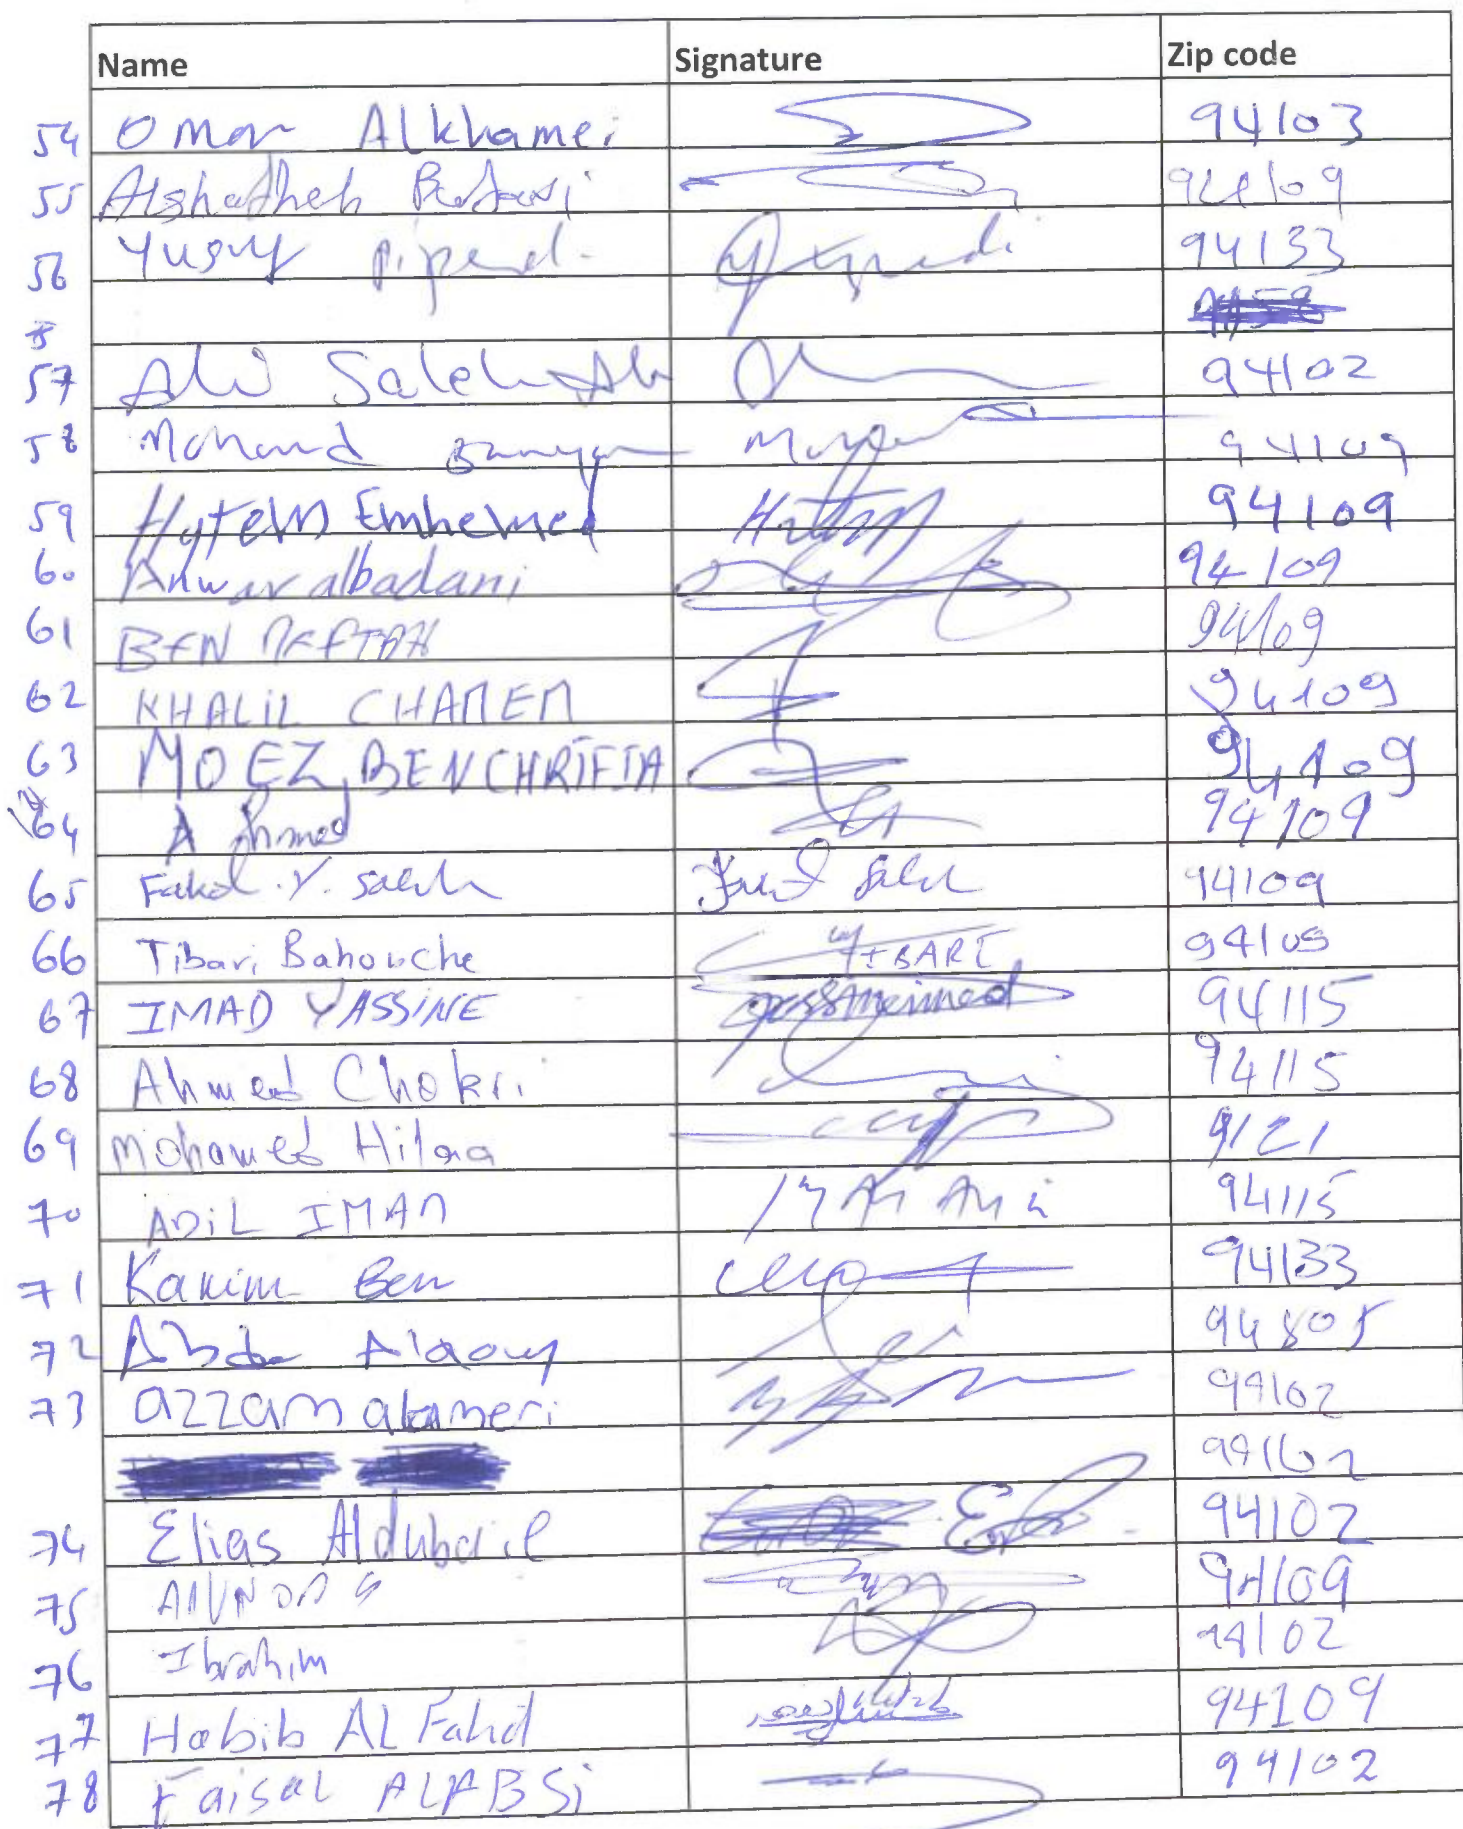 Name Signature Zip code
54 Omar Alkhamei 94103
55 Alshadheh 94109
56 Yusuf 94133
57 Ali Saleh Ali 94102
58 Mohamd 94109
59 Hytem Emhemed 94109
60 Anwar albadani 94109
61 BEN MEFTAH 94109
62 KHALIL CHAMEM 94109
63 MOEZ BENCHRIFIA 94109
64 A hmed 94109
65 Fahd .Y. Saleh 94109
66 Tibari Bahouche TIBARI 94109
67 IMAD YASSINE 94115
68 Ahmed Chokri 94115
69 Mohamed Hilaa 9121
70 ADIL IMAM 94115
71 Karim Ben 94133
72 Abdo Alaouy 94805
73 azzam alameri 94102
94102
74 Elias Aldubaiel 94102
75 94109
76 Ibrahim 94102
77 Habib AL Fahd 94109
78 Faisal ALABSi 94102